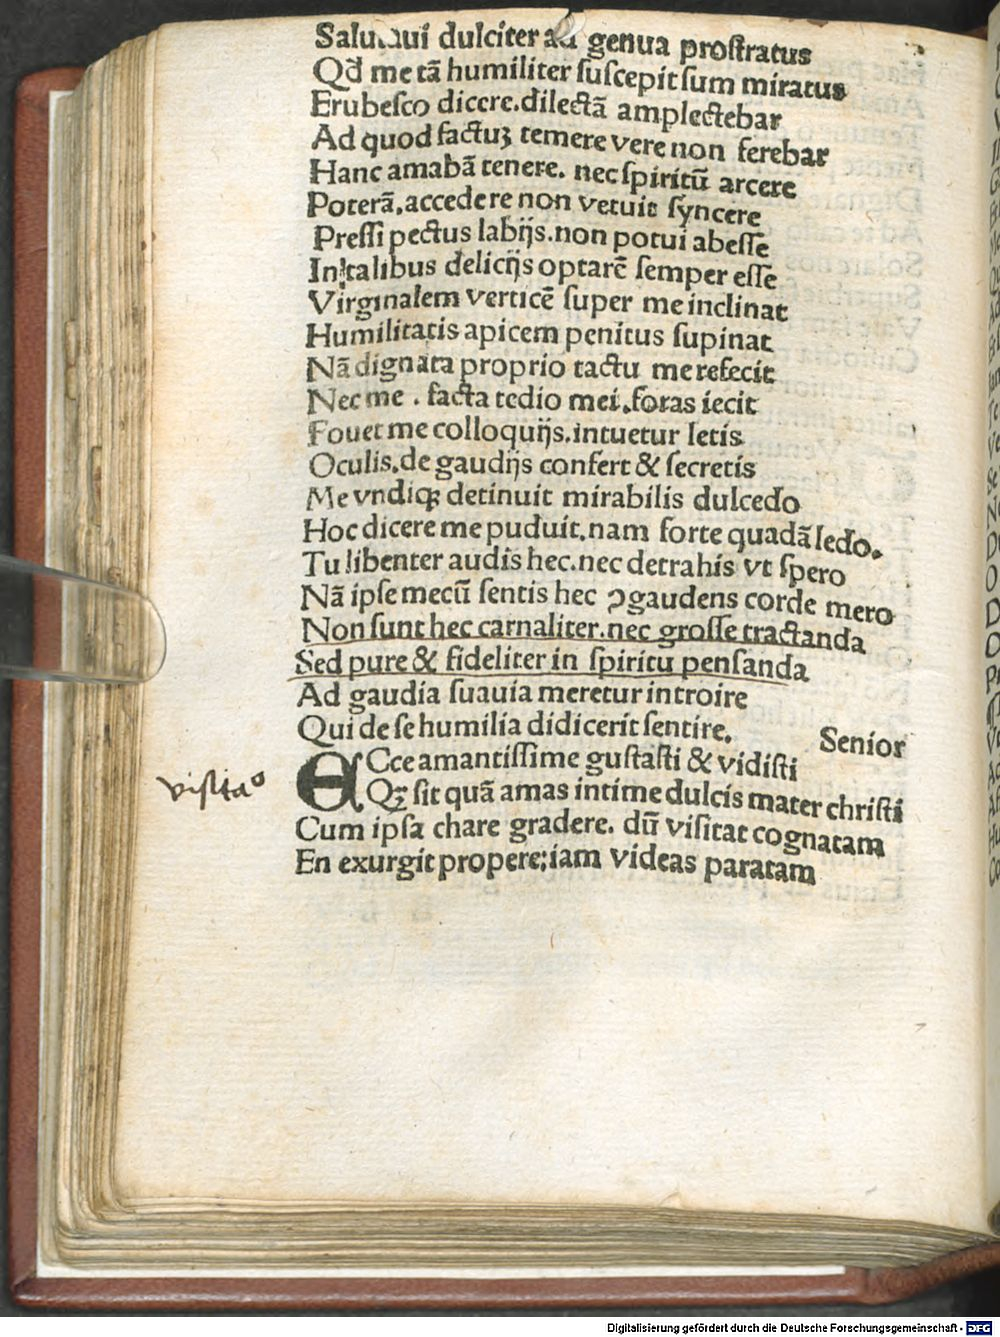 Salutaui dulciter ad genua proſtratus
Qđ me tā humiliter ſuſcepit ſum miratus
Erubeſco dicere.dilectā amplectebar
Ad quod factuꝫ temere vere non ferebar
Hanc amabā tenere. nec ſpiritū arcere
Poterā.accedere non vetuit ſyncere
Preſſi pectus labijs.non potui abeſſe
In talibus delicijs optarē ſemper eſſe
Virginalem verticē ſuper me inclinat
Humilitatis apicem penitus ſupinat
Nā dignata proprio tactu me refecit
Nec me . facta tedio mei.foras iecit
Fouet me colloquijs.intuetur letis
Oculis.de gaudijs confert & ſecretis
Me vndiqꝫ detinuit mirabilis dulcedo
Hoc dicere me puduit.nam forte quadā ledo.
Tu libenter audis hec.nec detrahis vt ſpero
Nā ipſe mecū ſentis hec ꝯgaudens corde mero
Non ſunt hec carnaliter.nec groſſe tractanda
Sed pure & fideliter in ſpiritu penſanda
Ad gaudia ſuauia meretur introire
Qui de ſe humilia didicerit ſentire.
Senior
ECce amantiſſime guſtaſti & vidiſti
Qꝫ ſit quā amas intime dulcis mater chriſti
viſitao
Cum ipſa chare gradere. dū viſitat cognatam
En exurgit propere;iam videas paratam
Digitalisierung gefördert durch die Deutsche Forschungsgemeinschaft - DFG